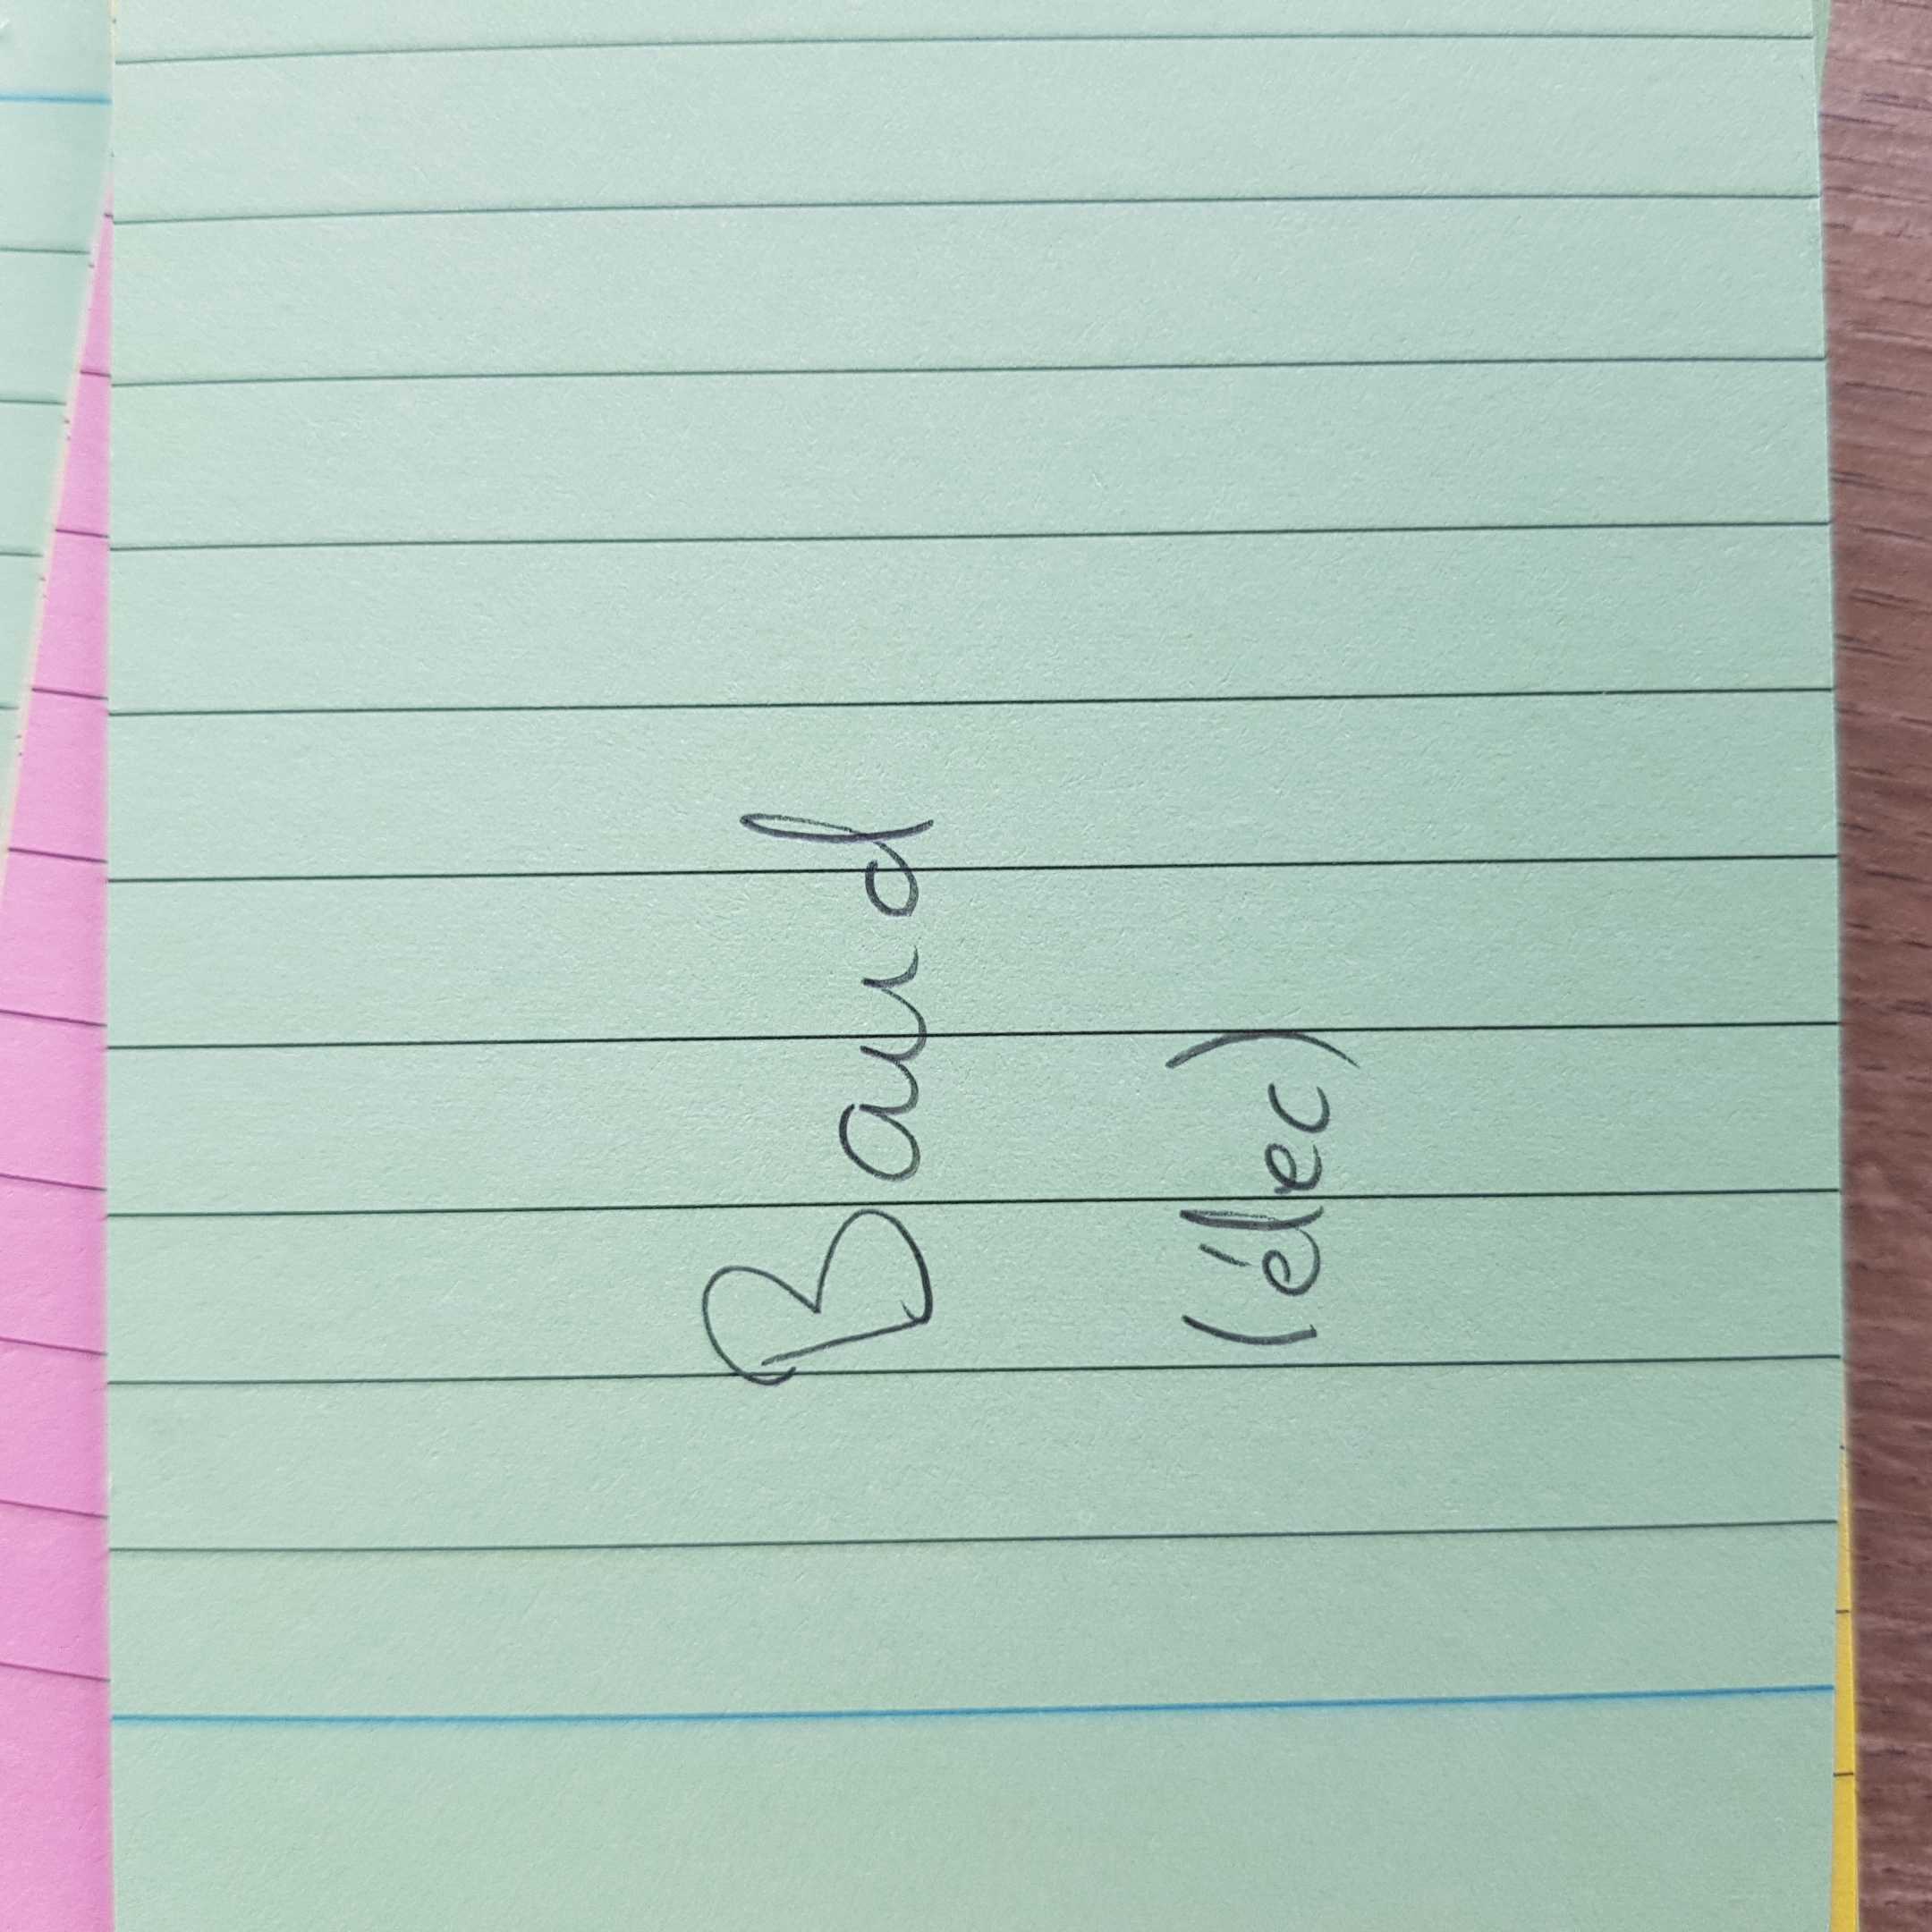 Baud
(élec)